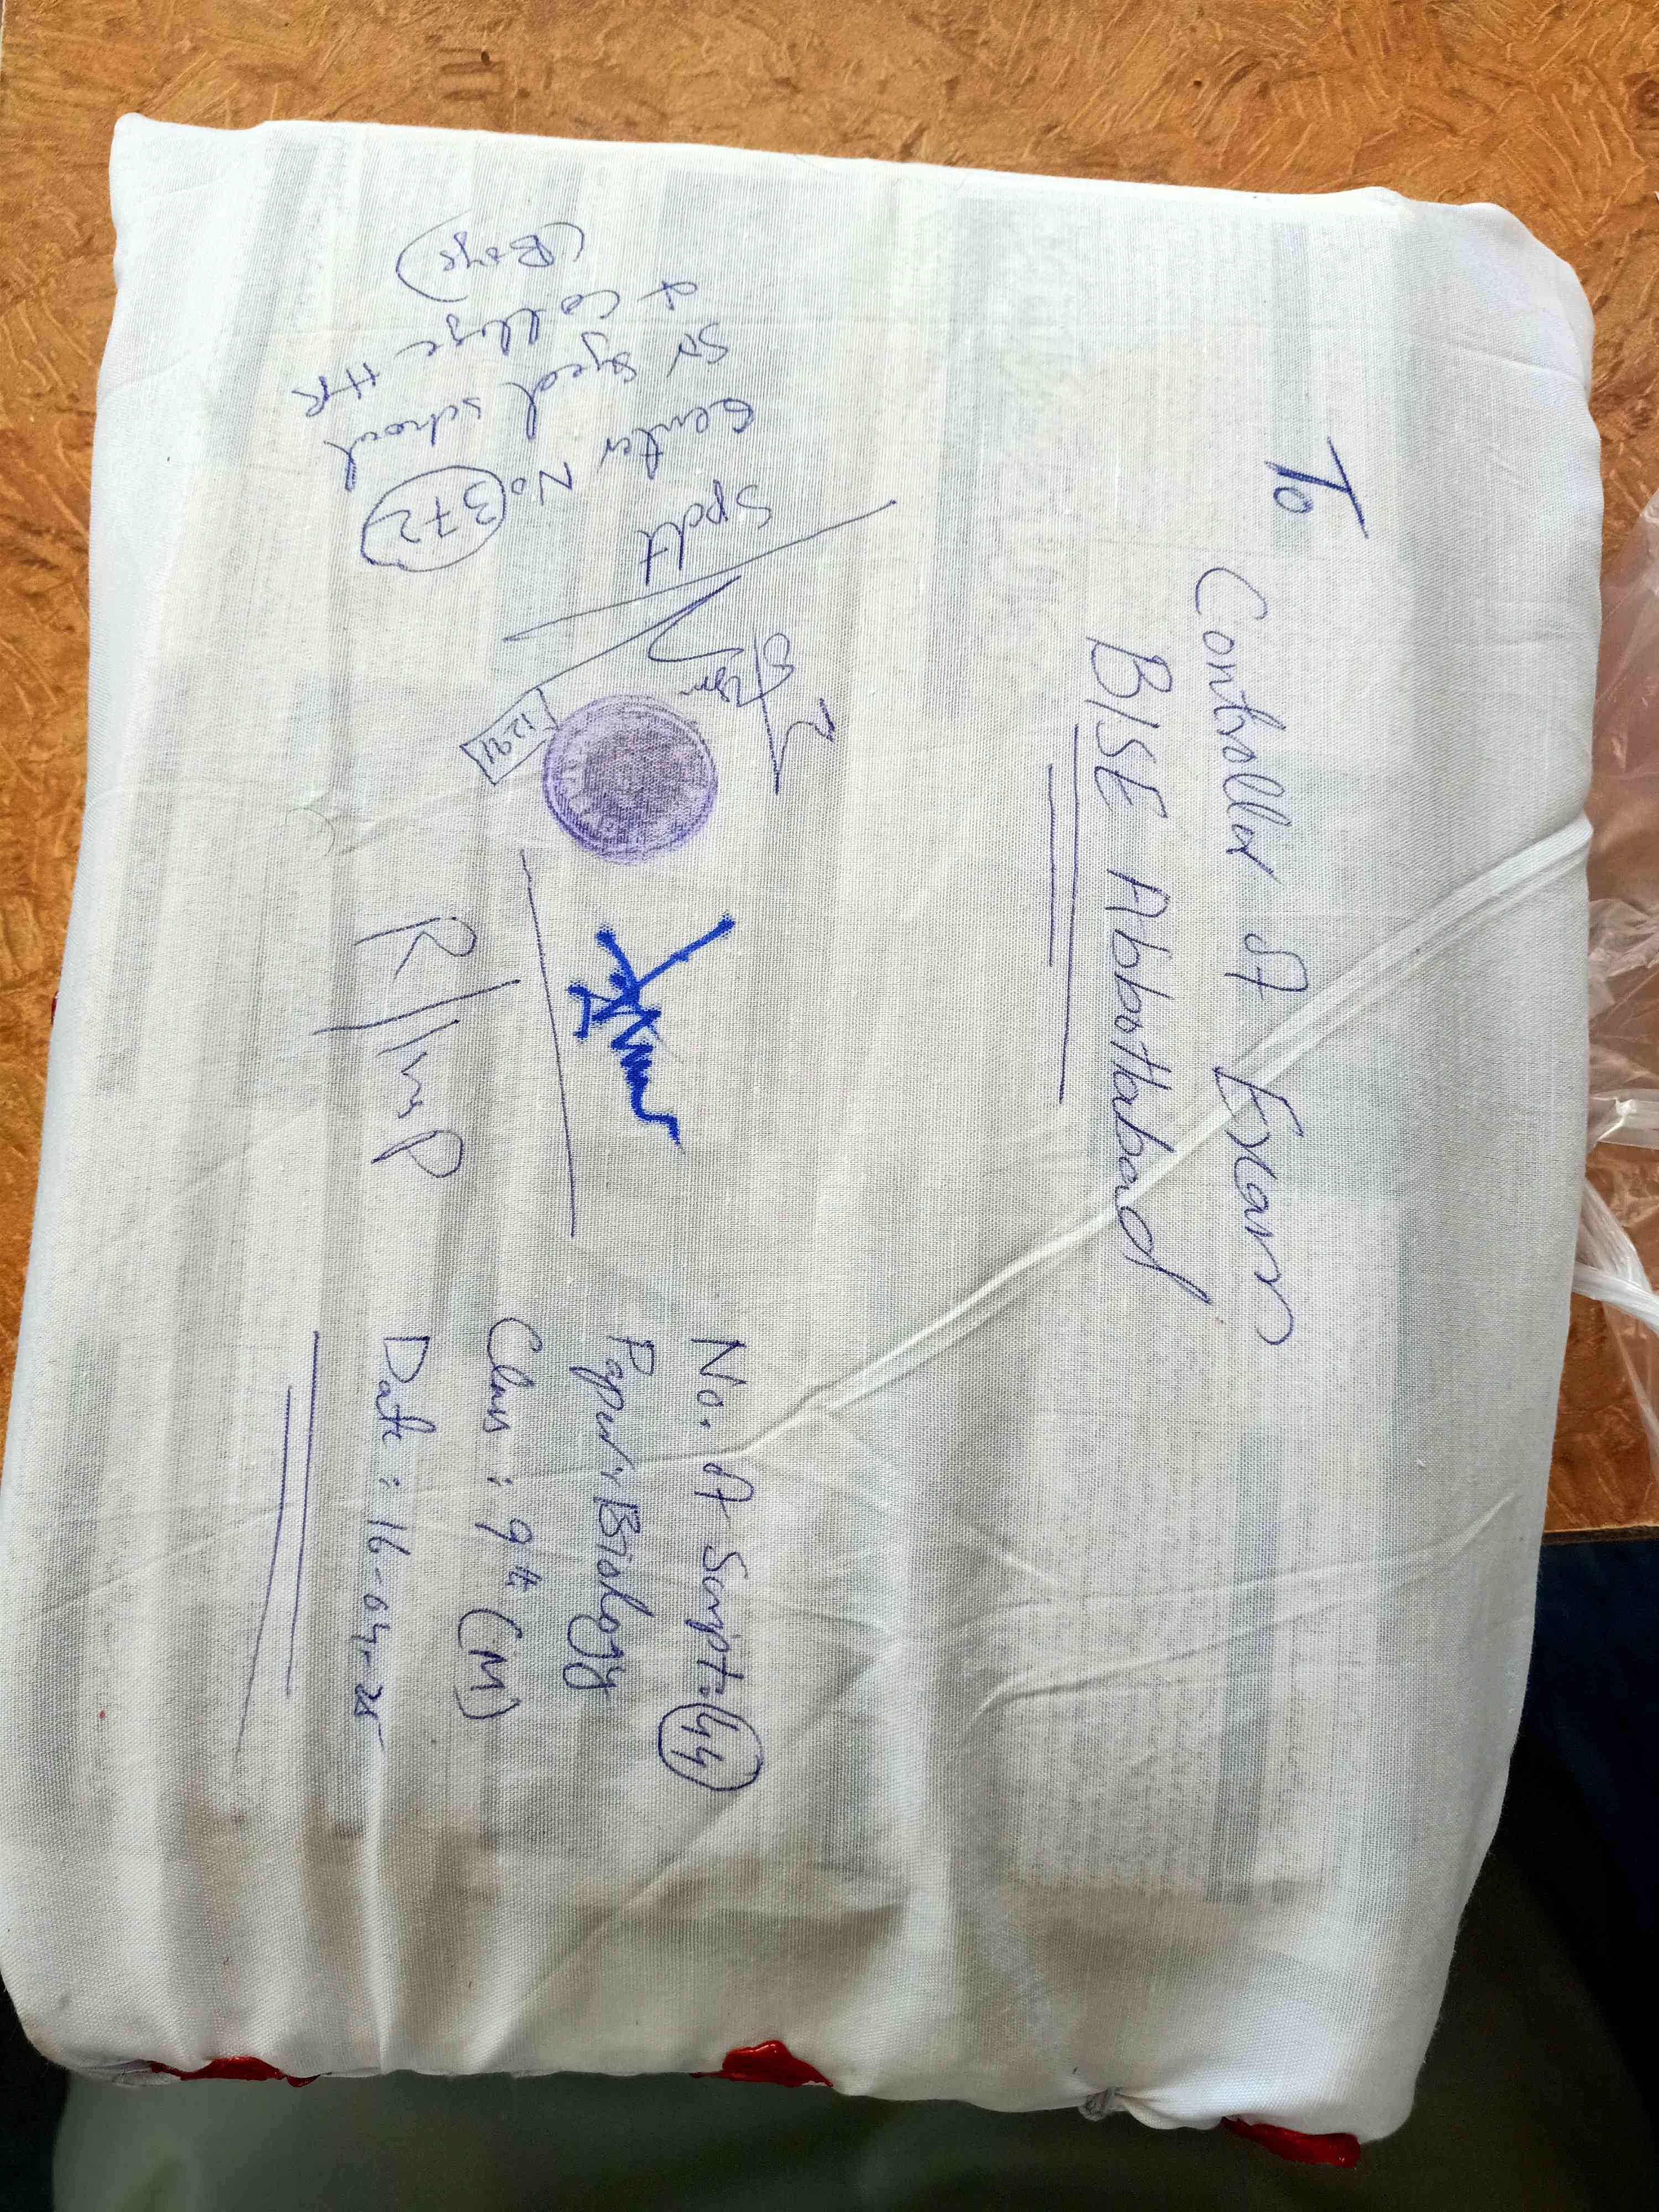 To
Controller of Exam
BISE Abbottabad
No. of Script: 44
Paper: Biology
Class: 9th (M)
Date: 16-04-25
R/Ins P
1291
Spdt
Center No 372
Sir Syed School
& College HR
(Boys)